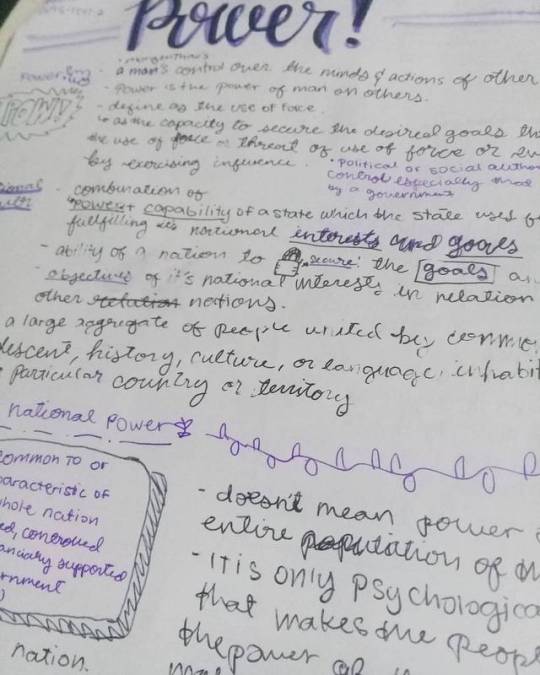 Power!
- a man's control over the minds & actions of other
- Power is the power of man on others.
- define as the use of force.
as the capacity to secure the desired goals th
the use of force or threat of use of force or ev
by exercising influence.
• political or social author
control especially that
by a government
POW!
- combination of
power + capability of a state which the state used f
fullfilling its national interests and goals
- ability of a nation to secure the goals an
- objectives of it's national interests in relation
other relation nations.
a large aggregate of people united by comm
descent, history, culture, or language, inhabit
particular country or territory
national power
common to or
characteristic of
whole nation
ed, controlled
financially supported
ernment
nation.
- doesn't mean power
entire population of th
- It is only psychologica
that makes the peopl
the power of